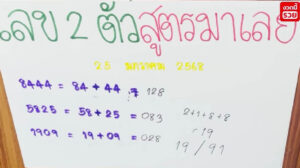 เลข 2 ตัวสูตรมาเลย์
25 มกราคม 2568
8444 = 84 + 44 = 128
5825 = 58 + 25 = 083
1909 = 19 + 09 = 028
2+1+8+8
= 19
19 / 91